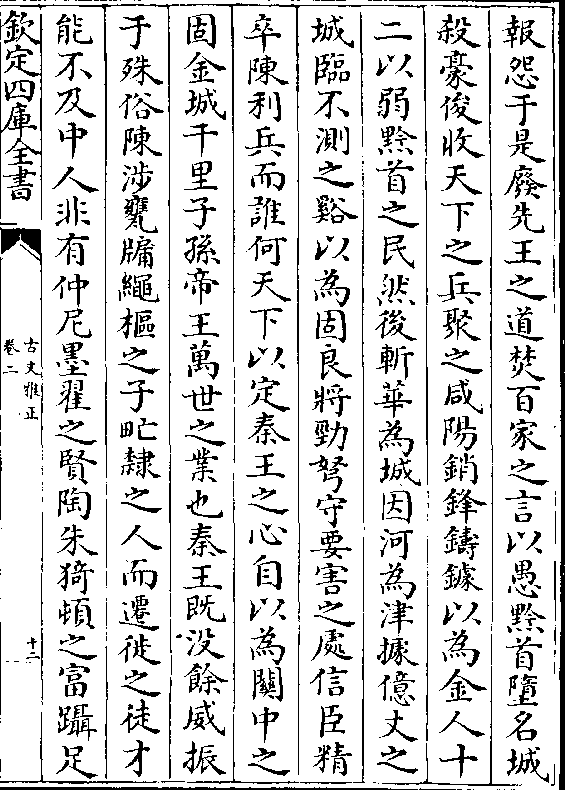 報怨于是廢先王之道焚百家之言以愚黔首墮名城
殺豪俊收天下之兵聚之咸陽銷鋒鑄鐻以為金人十
二以弱黔首之民然後斬華為城因河為津據億丈之
城臨不測之谿以為固良將勁弩守要害之處信臣精
卒陳利兵而誰何天下以定秦王之心自以為關中之
固金城千里子孫帝王萬世之業也秦王既没餘威振
于殊俗陳涉甕牖繩樞之子甿隸之人而遷徙之徒才
能不及中人非有仲尼墨翟之賢陶朱猗頓之富躡足
欽定四庫全書
古文雅正
卷二
十二